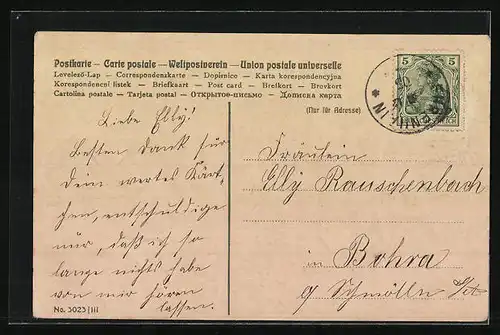 Postkarte – Carte postale – Weltpostverein – Union postale universelle
Levelező-Lap – Correspondenzkarte – Dopisnice – Karta korespondencyjna
Korespondenční listek – Briefkaart – Post card – Brefkort – Brevkort
Cartolina postale – Tarjeta postal – Открытое-письмо – Дописна карта
(Nur für Adresse)
5 5
Liebe Elly!
Besten Dank für
Dein wertes Kärt-
chen, entschuldige
nur, daß ich so
lange nichts habe
von mir hören
lassen.
No. 5023|III
Fräulein
Elly Rauschenbach
in Bohra
b/ Schmölln